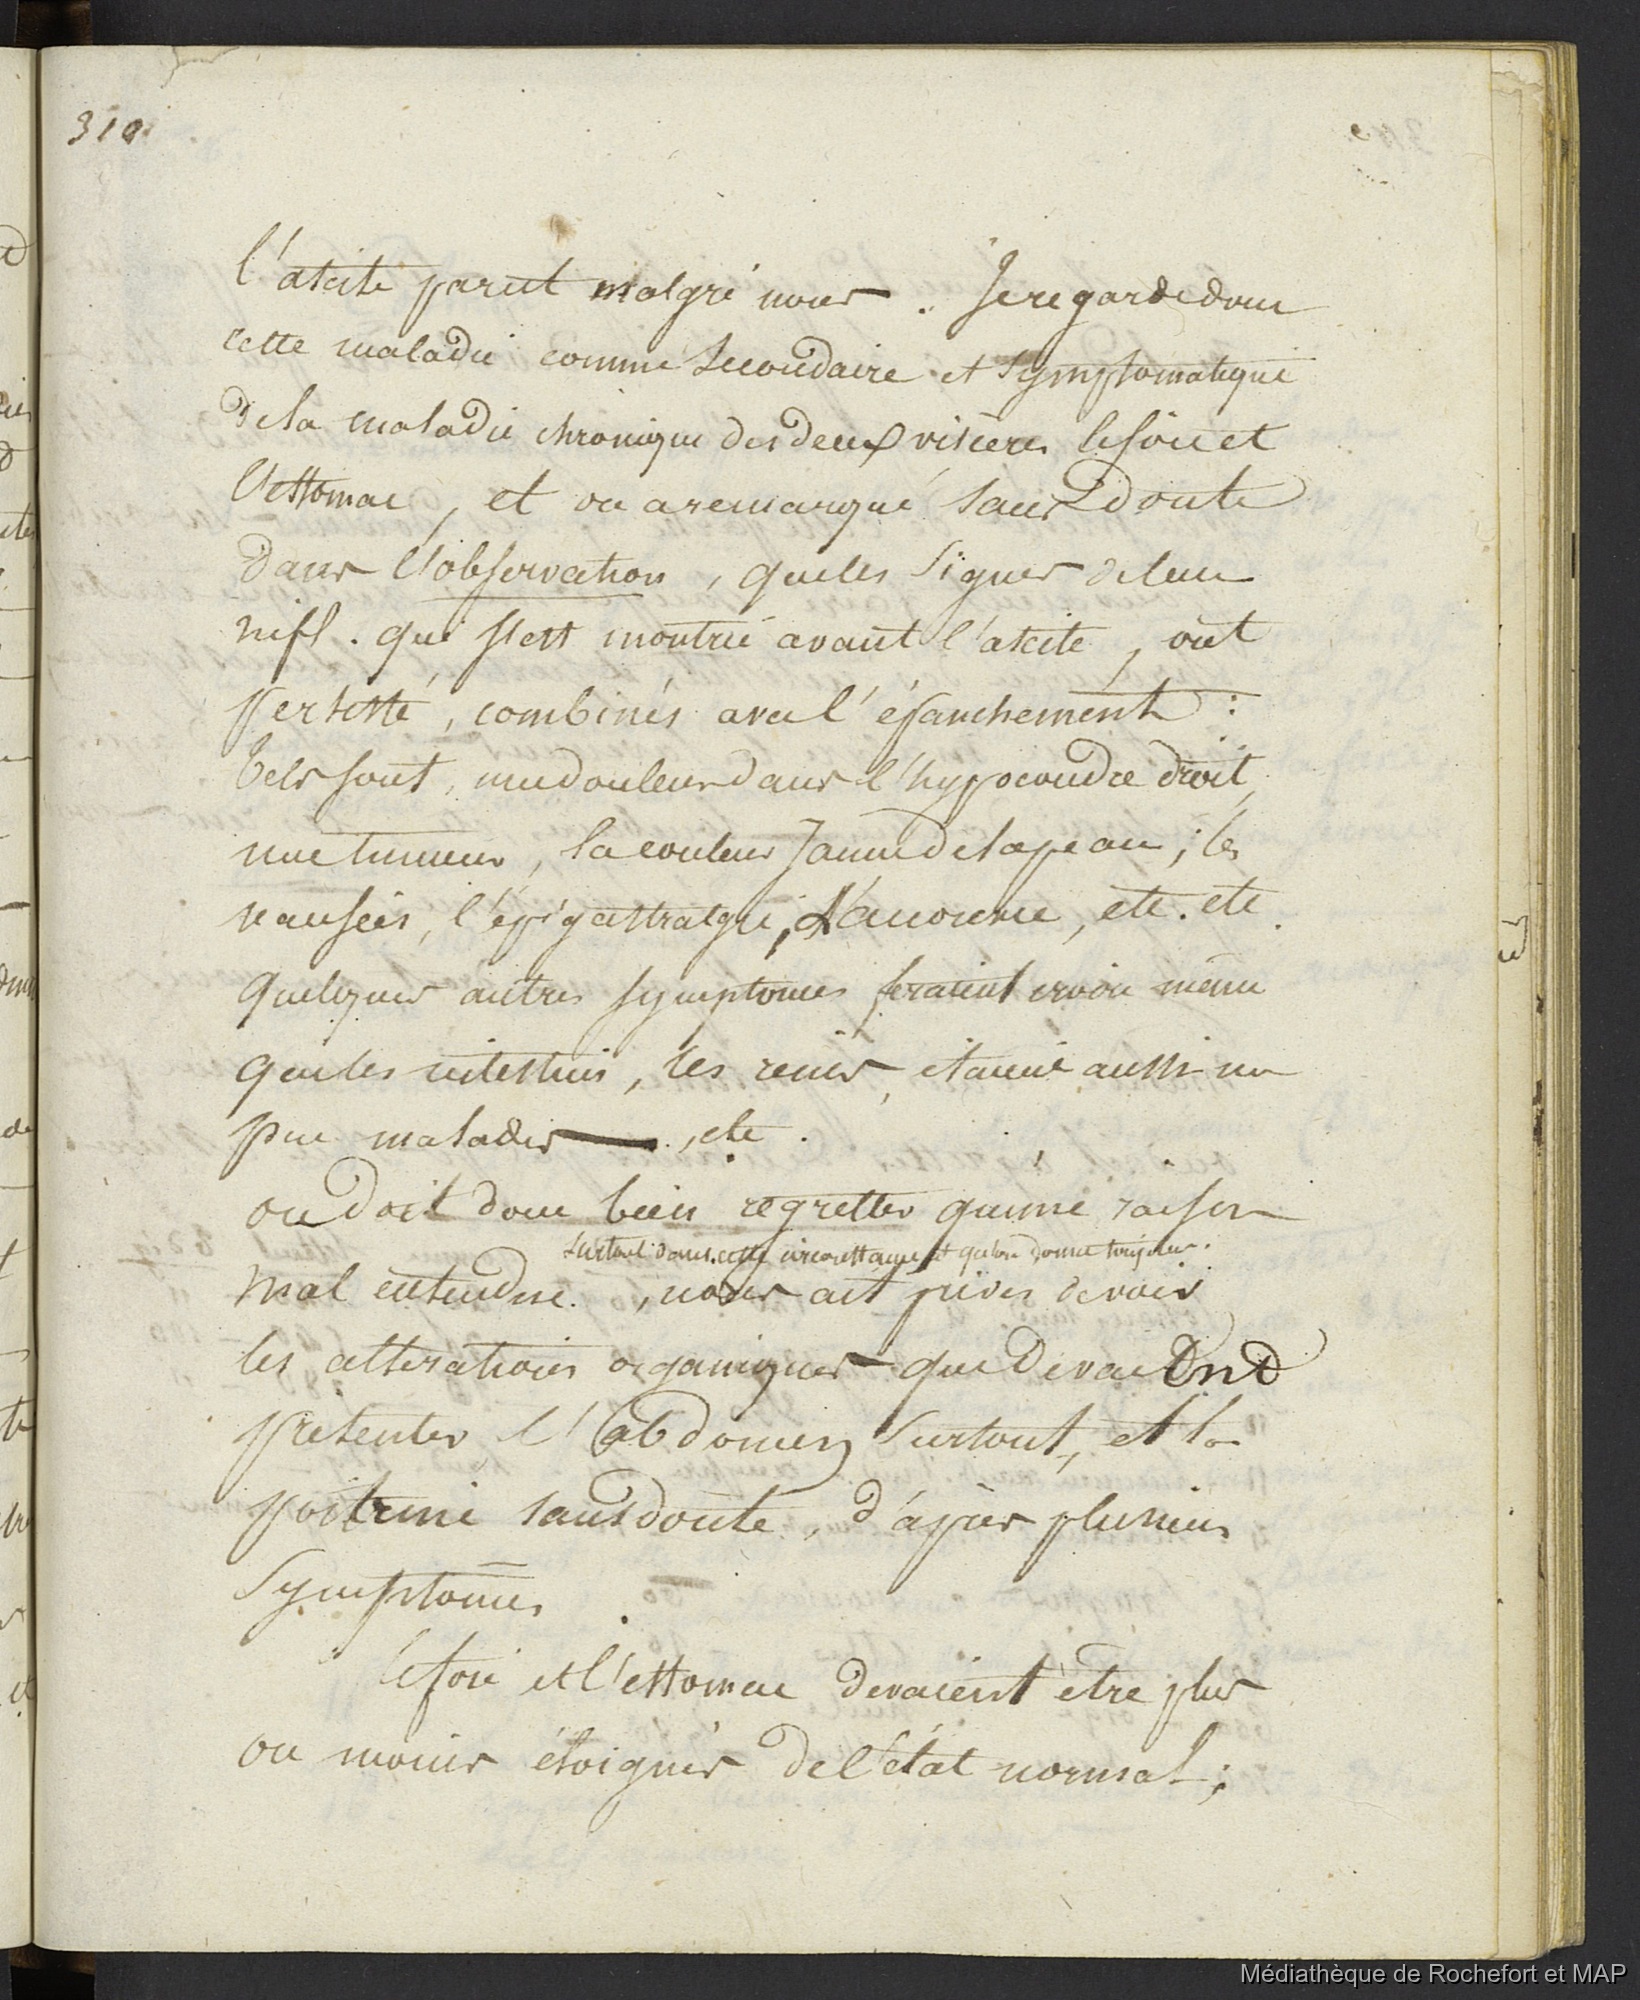 310
l'ascite parut malgré nous. Je regarde donc
cette maladie comme secondaire et symptomatique
de la maladie chronique des deux viscères le foie et
l'estomac, et on a remarqué sans doute
dans l'observation, que les signes de leur
qui s'est montré avant l'ascite, ont
persisté, combinés avec l'épanchement :
tels sont, une douleur dans l'hypocondre droit,
une tumeur, la couleur jaune de la peau ; les
nausées, l'épigastralgie, l'anorexie, etc. etc.
quelques autres symptomes feraient croire même
que les intestins, les reins, étaient aussi un
peu malades, etc.
on doit donc bien regretter qu'une raison
surtout dans cette circonstance et qu'on donne toujours.
mal entendue, nous ait privés de voir
les alterations organiques que devaient
présenter l'abdomen surtout, et la
poitrine sans doute, d'après plusieurs
symptomes.
le foie et l'estomac devaient être plus
ou moins éloignés de l'état normal ;
Médiathèque de Rochefort et MAP